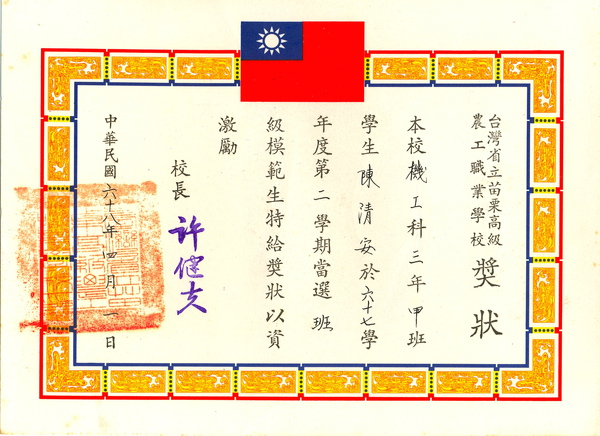 台灣省立苗栗高級
農工職業學校
獎狀
本校機工科三年甲班
學生陳清安於六十七學
年度第二學期當選班
級模範生特給獎狀以資
激勵
校長 許健夫
中華民國六十八年四月一日